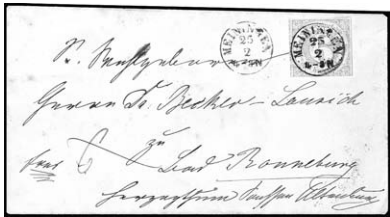 MEININGEN
25
2
MEININGEN
25
2
Sr. Wohlgeboren
Herrn Dr. Becker-Laurich
zu
Bad Ronneburg
Herzogthum Sachsen Altenburg